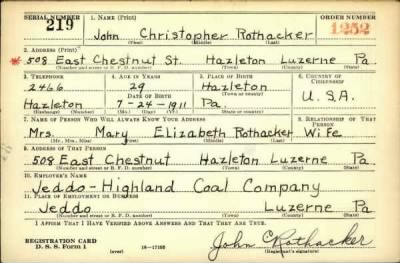 SERIAL NUMBER 1. NAME (Print) ORDER NUMBER
219 John Christopher Rothacker 1252
(First) (Middle) (Last)
2. ADDRESS (Print)
* 508 East Chestnut St. Hazleton Luzerne Pa.
(Number and street or R. F. D. number) (Town) (County) (State)
3. TELEPHONE 4. AGE IN YEARS 5. PLACE OF BIRTH 6. COUNTRY OF CITIZENSHIP
2466 29 Hazleton
DATE OF BIRTH (Town or county)
Hazleton 7-24-1911 Pa. U.S.A.
(Exchange) (Number) (Mo.) (Day) (Yr.) (State or country)
7. NAME OF PERSON WHO WILL ALWAYS KNOW YOUR ADDRESS 8. RELATIONSHIP OF THAT PERSON
Mrs. Mary Elizabeth Rothacker Wife
(Mr., Mrs., Miss) (First) (Middle) (Last)
9. ADDRESS OF THAT PERSON
508 East Chestnut Hazleton Luzerne Pa.
(Number and street or R. F. D. number) (Town) (County) (State)
10. EMPLOYER'S NAME
Jeddo-Highland Coal Company
11. PLACE OF EMPLOYMENT OR BUSINESS
Jeddo Luzerne Pa
(Number and street or R. F. D. number) (Town) (County) (State)
I AFFIRM THAT I HAVE VERIFIED ABOVE ANSWERS AND THAT THEY ARE TRUE.
REGISTRATION CARD
D. S. S. Form 1 (over) 16-17105 John C Rothacker
(Registrant's signature)